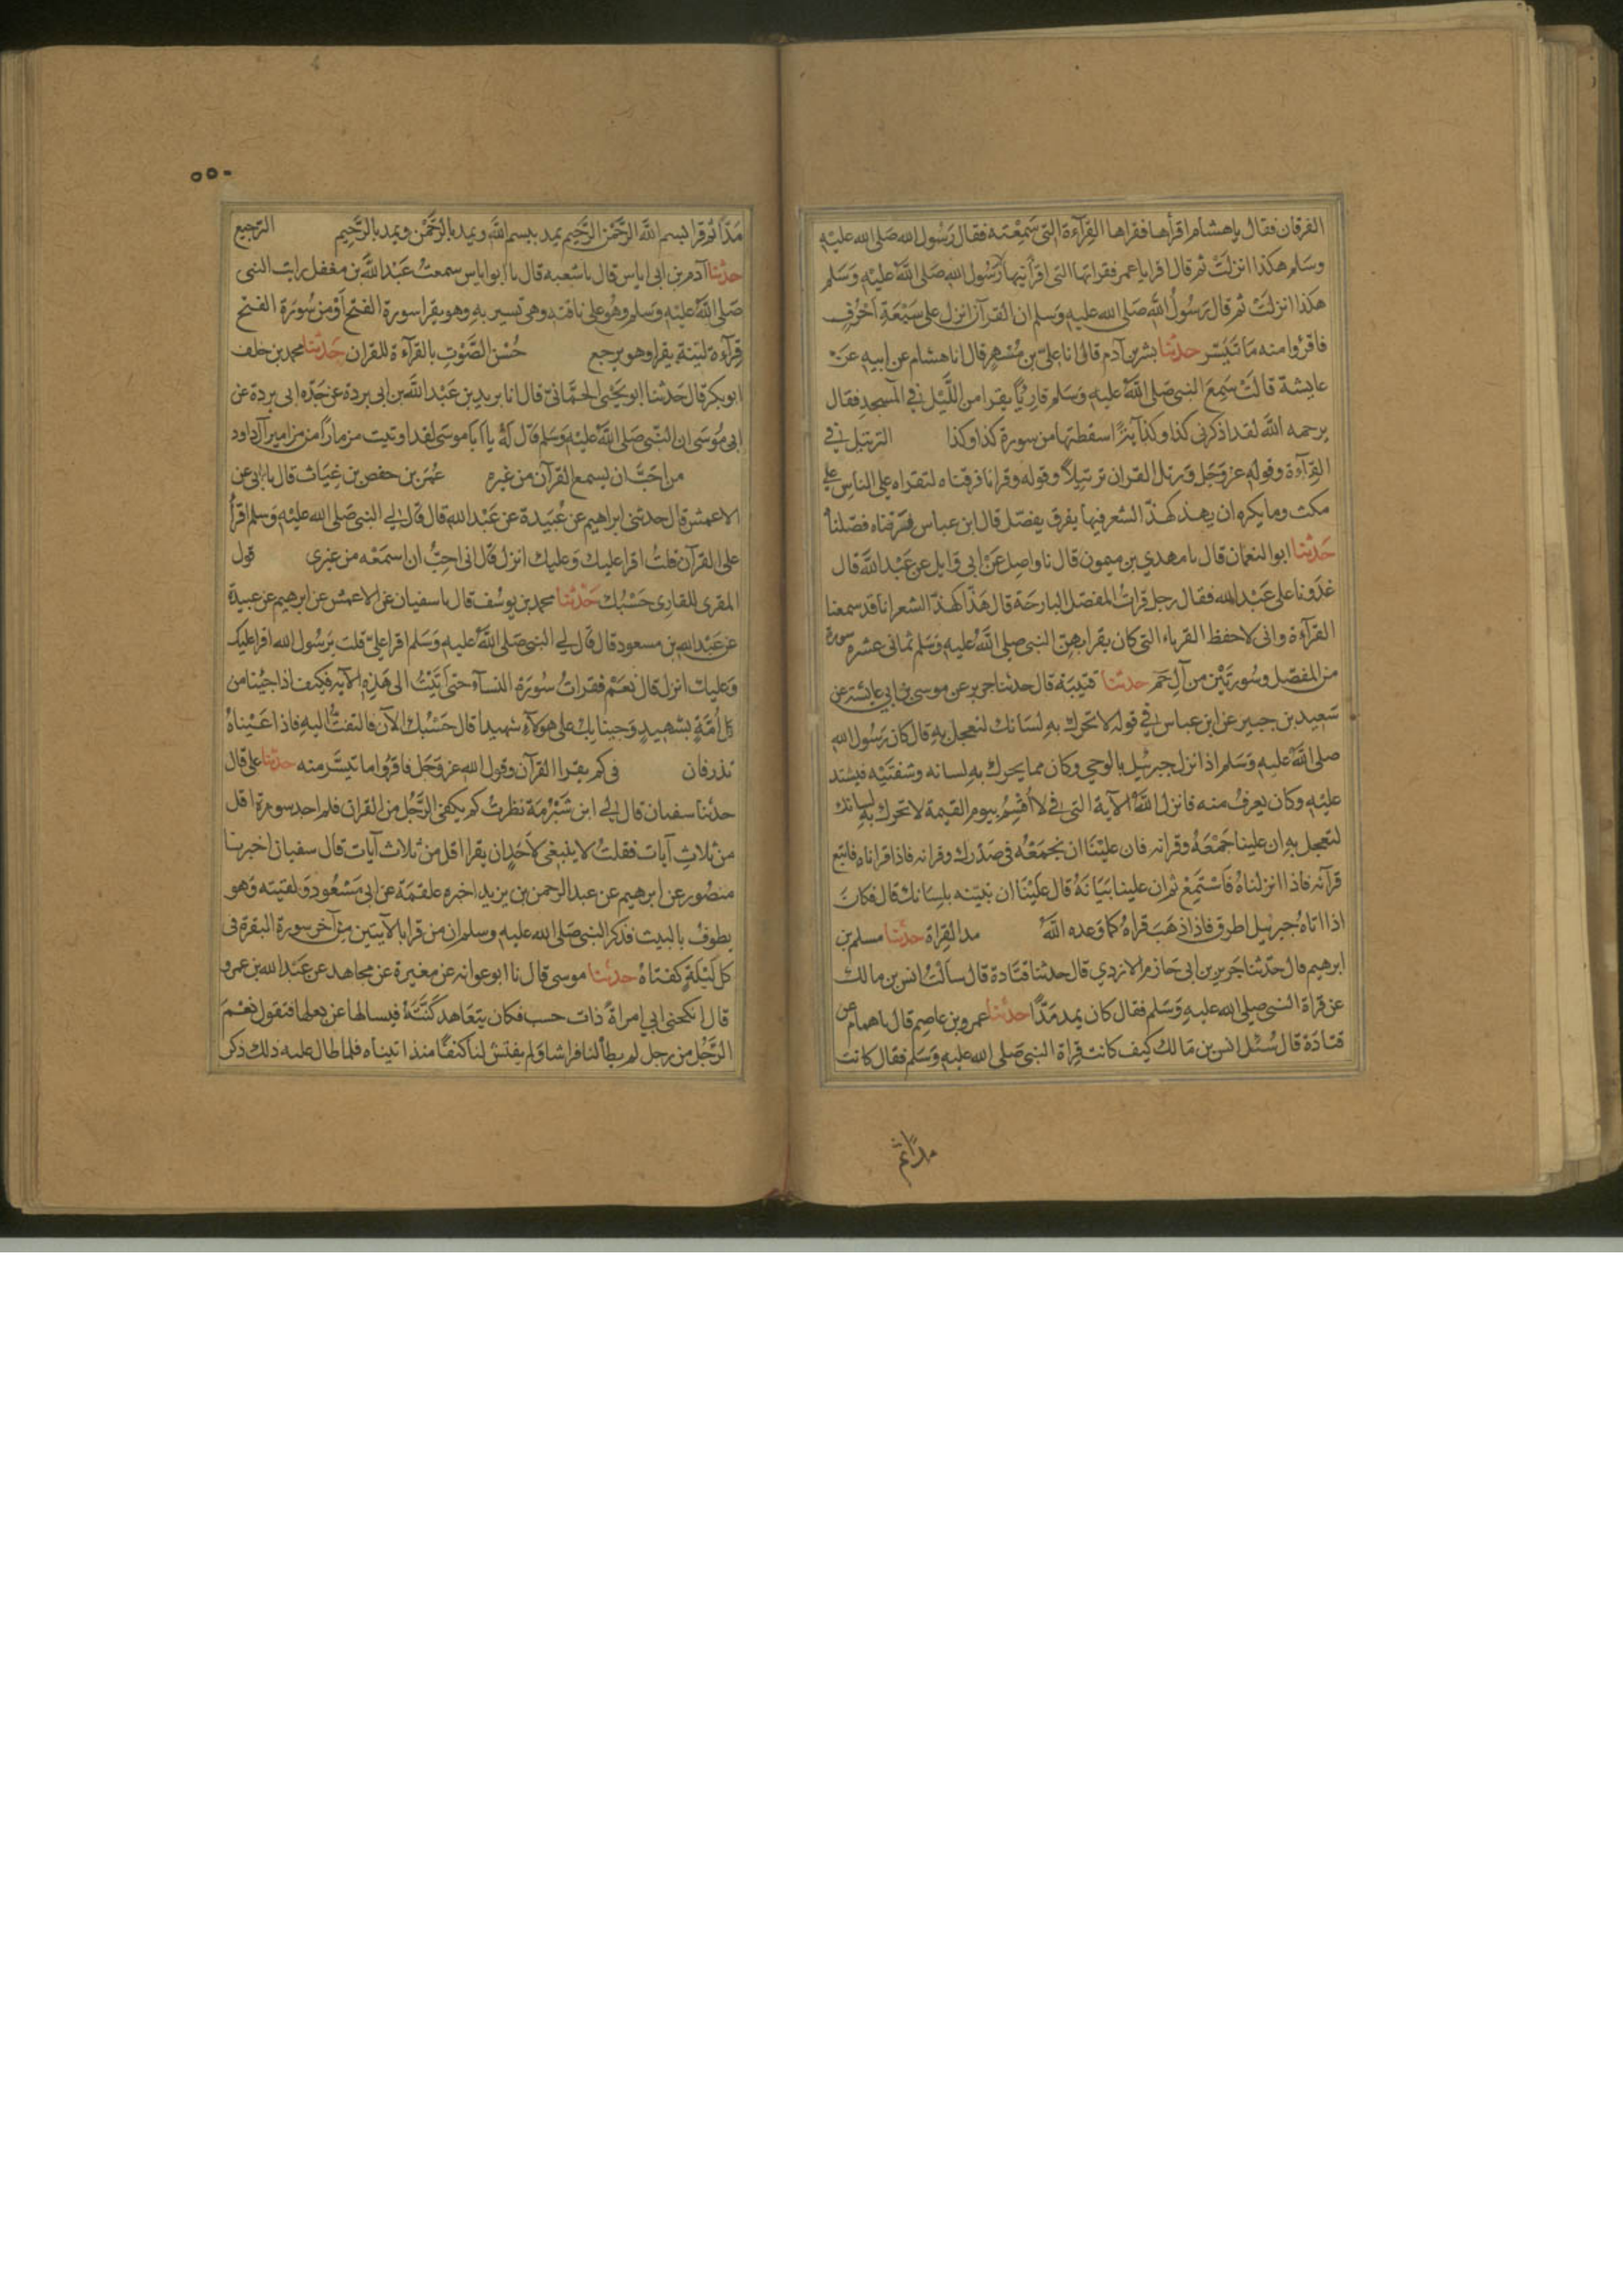 الفرقان فقال يا هشام اقرأها فقراها القِرآءة التى سَمِعْتـه فقال رَسُول الله صَلى الله عليْهِ
وسَلم هكذا انزلَتْ ثم قال اقرا يا عمر فقراتها التى اقرأنيها رَسُول الله صَلى اللهُ عليْهِ وَسَلم
هكَذا انزلتْ ثم قال رَسُولُ اللهِ صَلى الله عليهِ وَسَلم ان القرآن انزل على سَبْعَةِ احْرُفٍ
فاقرؤا منه مَا تَيَسّر حدثنا بشر بن آدم قال انا علىّ بن مُسْهِر قال انا هشام عن ابيهِ عَنْ
عايشة قالَتْ سَمِعَ النبى صَلى اللهُ عليهِ وَسَلم قارِئًا يقرا من اللّيْل في المسجدِ فقال
يرحمه الله لقد اذكرنى كذا وكذا آيةً اسقطتها من سورة كذا وكذا الترتيل في
القِرآءة وقولهِ عز وَجَل وَرتل القرآن ترتِيلاً وقوله وقرانا فرقناه لتقراه على الناسِ على
مكث وما يكره ان يهذ كهـذّ الشعر فيها يفرق يفصّل قال ابن عباس فَرَقناه فصّلناهُ
حَدثنا ابو النعمان قال نا مهدي بن ميمون قال نا واصِل عَنْ ابى وايل عن عَبْد اللهِ قال
غدَونا على عَبْد الله فقال رجل قراتُ المفصّل البارحَة قال هَذّا كهذّ الشعر انا قد سمعنا
القرآءة وانى لاحفظ القرناء التى كان يقرا بهِنّ النبى صلى اللهُ عليهِ وَسَلم ثمانى عشره سورة
من المفصّل وسُورتَيْن من آلِ حمَ حدثنا قتيبَة قال حدثنا جرير عن موسى بن ابي عائشة عن
سَعِيد بن جبير عن ابن عباس في قوله لا تحرّك بهِ لسَانك لتعجل بهِ قال كان رَسُول الله
صلى اللهُ عليهِ وَسَلم اذا نزل جبرئيل بالوحي وكان مما يحرك بهِ لسانه وشفتَيْهِ فيشتد
عليْهِ وكان يعرفُ منه فانزل اللهُ الآية التى في لا أُقْسِمُ بيوم القيمة لا تحرك به لسانك
لتعجل بهِ ان علينا جَمْعَهُ وقرانه فان عليْنَا ان نجمَعَهُ فى صَدْرك وقرانه فاذا قراناه فاتبع
قرآنه فاذا انزلناهُ فَاسْتمِعْ ثم ان علينا بَيَانَهُ قال عَلَيْنَا ان نبَيّنه بلِسَانك قال فكان
اذا اتاهُ جبرئيل اطرق فاذا ذهَبَ قراهُ كما وَعده اللهُ مد القِراة حدّثنا مسلم بن
ابرهيم قال حدّثنا جَرير بن ابى حَازم الازدي قال حدثنا قتَادة قال سالْتُ انس بن مالك
عن قراة النبى صلى الله عليهِ وَسَلم فقال كان يمد مَدًّا حدثنا عمرو بن عاصِم قال نا همام عن
قتادَة قال سُئل انس بن مَالك كيف كانت قِراة النبى صَلى الله عليهِ وَسَلم فقال كانت
مدّا ثم
٥٥٠
مَدّا ثم قرا بسم الله الرحمن الرحيم يمد ببسم الله ويمد بالرَّحمٰن ويمد بالرّحِيم الترجيع
حدثنا آدم بن ابى اياس قال نا شعبه قال نا ابو اياس سمعتُ عَبْد اللهِ بن مغفل رايت النبى
صَلى اللهُ عليْهِ وَسَلم وهُو على ناقته وهى تسير بهِ وهو يقرا سورة الفتح اوْ من سُورَة الفتح
قِرآءة ليّنة يقرا وهو يرجع حُسْن الصَّوْتِ بالقرآءة للقران حَدثنا محمد بن خلف
ابو بكر قال حَدثنا ابو يَحْيى الحِمَّانى قال انا بريد بن عَبْد الله بن ابى بردة عن جَدّه ابى بردة عن
ابى مُوسَى ان النّبى صَلى اللهُ عليْهِ وَسَلم قال لَهُ يا اَبَا موسَى لقد اوتيت مزمارًا من مزامير آل داود
من احَبّ ان يسمع القرآن من غيره عُمَر بن حفص بن غِيَاث قال نا ابى عن
الاعمش قال حدثنى ابراهيم عن عُبَيدة عن عَبْد الله قال قال لي النبى صَلى الله عليْهِ وَسلم اقرأ
على القرآن قلتُ اقرا عليك وَعليك انزل قال انى احِبُّ ان اسمَعْه من غيرى قول
المقرى للقارى حَسْبُك حَدْثنا محمد بن يوسُف قال نا سفيان عن الاعمش عن ابرهيم عن عبيدة
عن عَبْد الله بن مسعود قال قال لي النبى صَلى اللهُ عليهِ وَسَلم اقرا علىّ قلت يَرسُول الله اقرا عليك
وَعليك انزل قال نعَمْ فقراتُ سُورَة النسآء حتى اتَيْتُ الى هَذِهِ الآيه فكيف اذا جئنا من
كل اُمَّةٍ بشهِيدٍ وَجينا بِكَ على هوُلآءِ شهيدا قال حَسْبُك الآن فالتفتُّ اليهِ فاذا عَيْناهُ
تذرفان فى كم يقرا القرآن وقول الله عز وَجَل فاقرؤا ما تيسّر منه حدثنا على قال
حدثنا سفيان قال لي ابن شَبْرُمَة نظرتُ كم يكفى الرّجُل من القران فلم اجد سورة اقل
من ثلاثِ آيات فقلتُ لا ينبغى لاَحَدٍ ان يقرا اقل من ثلاث آيات قال سفيان اخبرنا
منصُور عن ابرهيم عن عبد الرحمن بن يزيد اخبره علقمَة عن ابى مَسْعُود وَلقيته وَهو
يطوفُ بالبيت فذكر النبى صَلى الله عليهِ وسلم ان من قرا بالآيتين من آخر سورة البقرة فى
كل لَيْلةٍ كفتاهُ حدثنا موسى قال نا ابو عوانه عن مغيرة عن مجاهد عن عَبْد الله بن عمرو
قال انكحنى ابي امراةً ذات حسب فكان يتعَاهد كَنَّتَهُ فيسالها عن بعلها فتقول نعْمَ
الرّجُل من رجل لم يطأ لنا فراشا وَلم يفتش لنا كنفًا منذ اتيناه فلما طال عليه ذلك ذكر